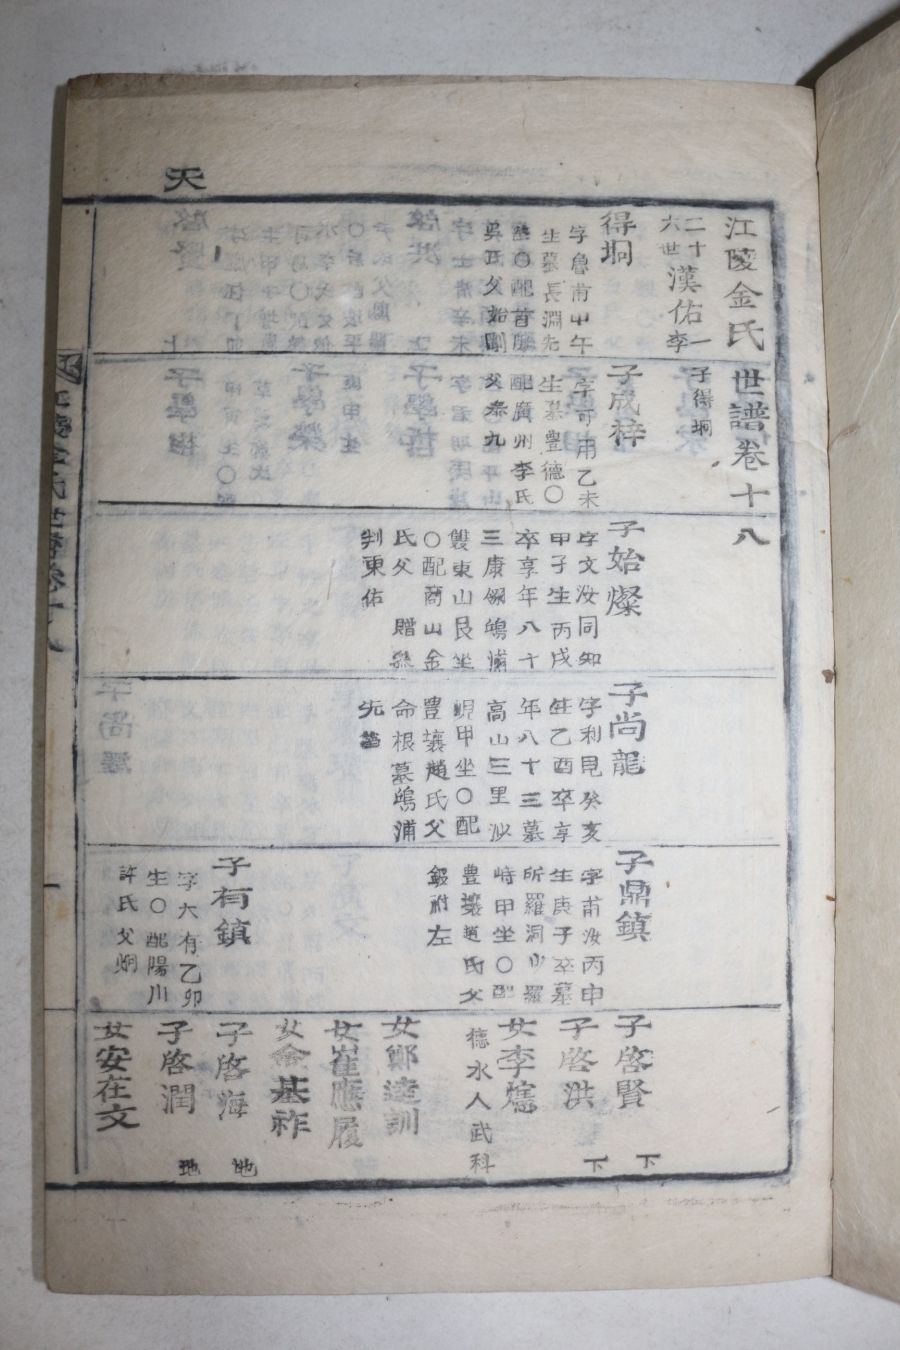 天
江陵金氏世譜卷十八
二十
六世
漢佑
李一
子得垌
得垌
字魯甫甲午
生墓長淵先
塋〇配首陽
吳氏父始剛
子成梓
字可用乙未
生墓豊德〇
配廣州李氏
父泰九
子始燦
字文汝同知
甲子生丙戌
卒享年八十
三康翎鴟浦
雙東山艮坐
〇配商山金
氏父 贈
判東佑
子尚龍
字利見癸亥
生乙酉卒享
年八十三墓
高山三里汄
峴甲坐〇配
豊壤趙氏父
命根墓鴟浦
先
子鼎鎮
字甫汝丙申
生庚子卒墓
所羅洞小羅
峙甲坐〇配
豊壤趙氏父
鍜祔左
子有鎮
字大有乙卯
生〇配陽川
許氏父炯
子啓賢
下
子啓洪
下
女李爌
德水人武科
女鄭達訓
女崔應履
女俞基祚
子啓海
地
子啓潤
地
女安在文